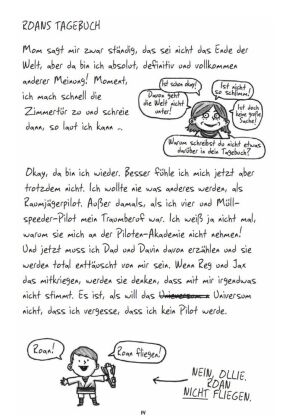 ROANS TAGEBUCH
Mom sagt mir zwar ständig, das sei nicht das Ende der
Welt, aber da bin ich absolut, definitiv und vollkommen
anderer Meinung! Moment,
ich mach schnell die
Zimmertür zu und schreie
dann, so laut ich kann ..
Ist schon okay!
Davon geht
die Welt nicht
unter!
Ist nicht
so schlimm!
Ist doch
keine große
Sache!
Warum schreibst du nicht etwas
darüber in dein Tagebuch?
Okay, da bin ich wieder. Besser fühle ich mich jetzt aber
trotzdem nicht. Ich wollte nie was anderes werden, als
Raumjägerpilot. Außer damals, als ich vier und Müll-
speeder-Pilot mein Traumberuf war. Ich weiß ja nicht mal,
warum sie mich an der Piloten-Akademie nicht nehmen!
Und jetzt muss ich Dad und Davin davon erzählen und sie
werden total enttäuscht von mir sein. Wenn Reg und Jax
das mitkriegen, werden sie denken, dass mit mir irgendwas
nicht stimmt. Es ist, als will das Universum
nicht, dass ich vergesse, dass ich kein Pilot werde.
Roan!
Roan fliegen!
NEIN, OLLIE.
ROAN
NICHT FLIEGEN.
IV